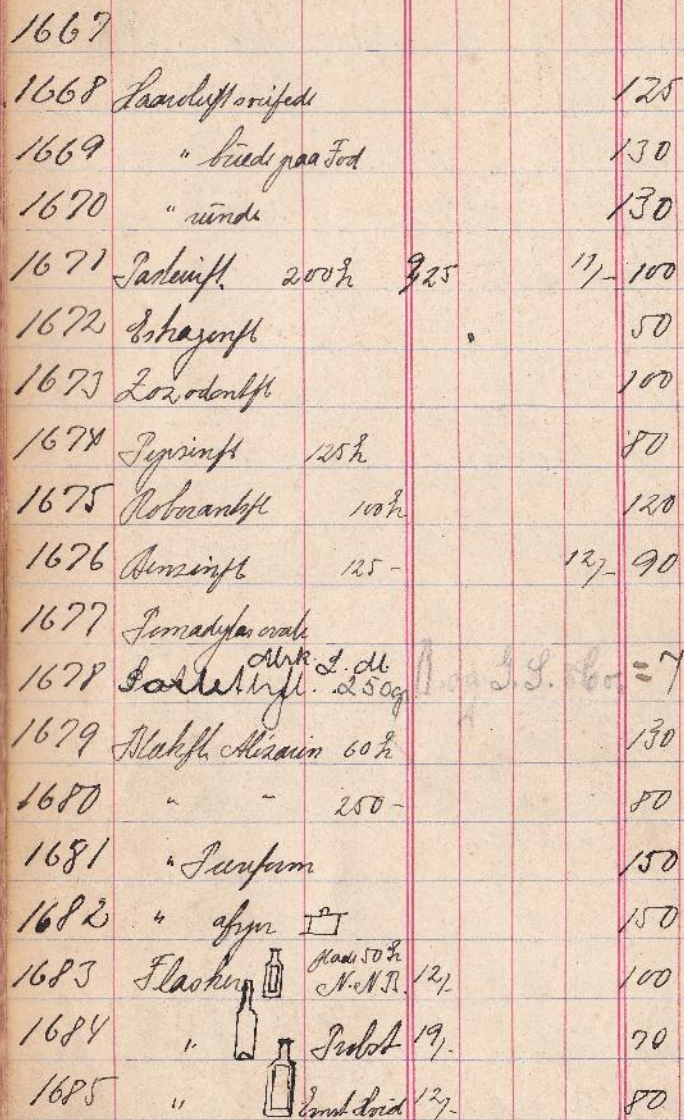 1667
1668 Haarolieft sveifede 125
1669 " buede paa Fod 130
1670 " runde 130
1671 200 h 9,25 11/- 100
1672 50
1673 Zozodontft 100
1674 Pepsinft 125 h 80
1675 Roborantsft 100 h 120
1676 Benzinft 125 - 12/- 90
1677 Pomadeglas ovale
1678 Mrk. L. M. 250 g og = 7
1679 Blækft. Alizarin 60 h 130
1680 " " 250 - 80
1681 " Pæreform 150
1682 " 150
1683 Flasker flade 50 h N.N.B. 12/- 100
1684 " Probst 19/- 70
1685 " Ernst Hviid 12/- 80